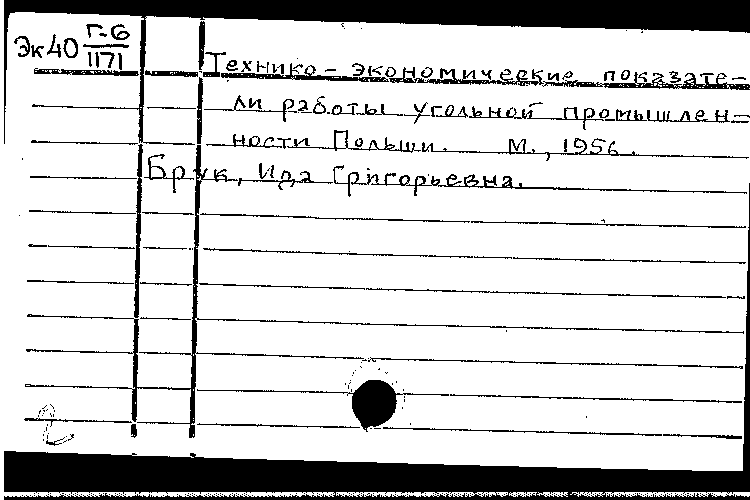 Эк40 Г-6
1171
Технико-экономические показате-
ли работы угольной промышлен-
ности Польши. М., 1956.
Брук, Ида Григорьевна.
2